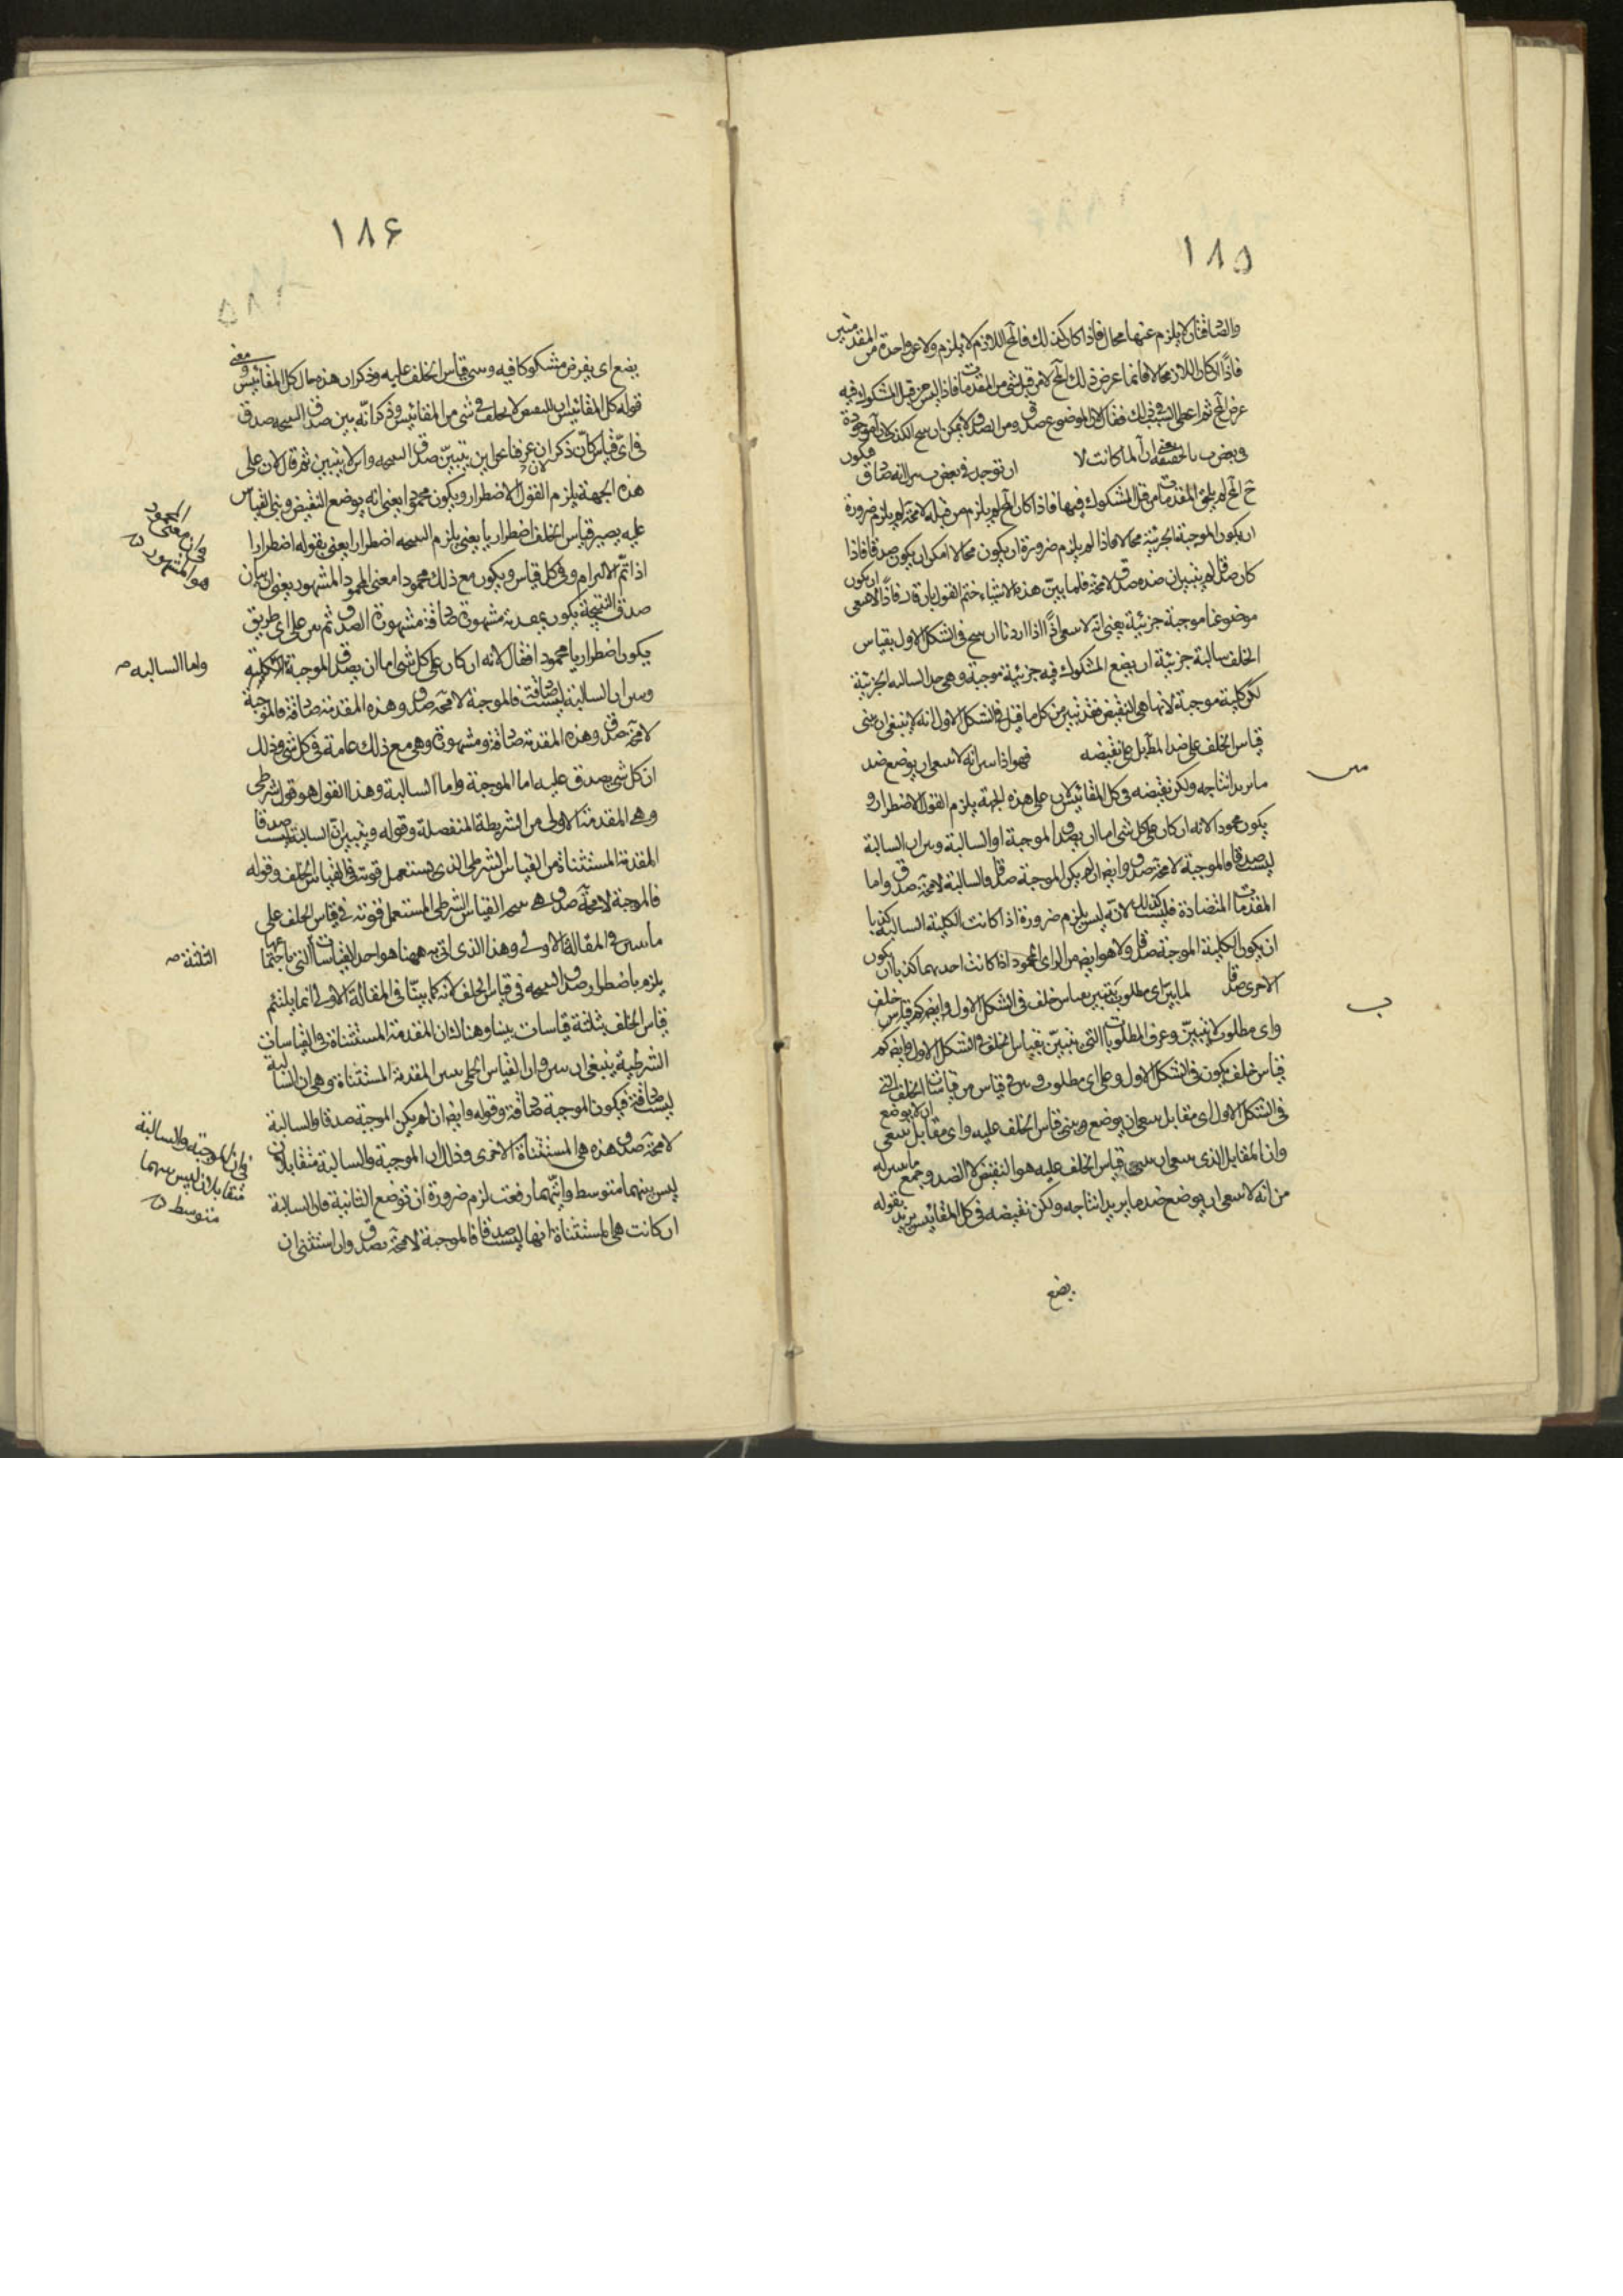 ١٨٥
والصادقتان لا يلزم عنهما محال فاذا كان كذلك فالمح اللازم لا يلزم ولا عن واحدة من المقدمتين
فاذًا ان كان اللازم محالا فانما عرض ذلك المح لا من قبل شى من المقدمات فاذا ليس من قبل المشكوك فيه
عرض المح ثم اعطى السبب فى ذلك فقال لان الموضوع صدق ومن الصدق لا يمكن ان
وبعض ب بالحقيقة يعنى ان آ لما كانت لا ان توجد فى بعض ب صادق فيكون
ح المح لم يلحق المقدمات من قبل المشكوك فيها فاذا كان المح لم يلزم من قبله لا محة لم يلزم ضرورة
ان يكون الموجبة الجزئية محالا فاذا لم يلزم ضرورة ان يكون محالا امكن ان يكون صدقا فاذا
كان صدقا لم يتبين ان ضده صدق لا محة فلما بين هذه الاشياء ختم القول بان قال فاذًا لا ينبغى ان يكون
موضوعنا موجبة جزئية يعنى انه لا ينبغى اذًا اذا اردنا ان ننتج فى الشكل الاول بقياس
الخلف سالبة جزئية ان يضع المشكوك فيه جزئية موجبة وهى ضد السالبه الجزئية
لكن كلية موجبة لانها هى النقيض فقد تبين من كل ما قيل فى الشكل الاول انه لا ينبغى ان يبنى
قياس الخلف على ضد المط بل على نقيضه فهو اذا بين انه لا ينبغى ان يوضع ضد
ما نريد انتاجه ولكن نقيضه فى كل المقائيس لان على هذه الجهة يلزم القول الاضطرار و
يكون محمودا لانه ان كان على كل شى اما ان يصدق الموجبة او السالبة وبين ان السالبة
ليست صدقا فالموجبة لا محة صدق وايضا ان لم يكن الموجبة صدقا فالسالبة لا محة صدق واما
المقدمات المتضادة فليست كذلك لانه ليس يلزم ضرورة اذا كانت الكلية السالبة كذبا
ان يكون الكلية الموجبة صدقا ولا هو ايضا من الراى المحمود اذا كانت احديهما كذبا ان يكون
الاخرى صدقا لما بين اى مطلوب يتبين بقياس خلف فى الشكل الاول وايضا كم قياس خلف
واى مطلوب لا يتبين وعرف المطلوبات التى تتبين بقياس الخلف فى الشكل الاول وايضا كم
قياس خلف يكون فى الشكل الاول وعلى اى مطلوب وبين فى قياس من قياسات الخلف التى
فى الشكل الاول اى مقابل ينبغى ان يوضع ويبنى قياس الخلف عليه واى مقابل ينبغى ان لا يوضع
وان المقابل الذى ينبغى ان يبنى قياس الخلف عليه هو النقيض لا الضد وجمع ما بين له
من انه لا ينبغى ان يوضع ضد ما يريد انتاجه ولكن نقيضه فى كل المقائيس يريد بقوله
يضع
١٨۶
يضع اى يفرض مشكوكا فيه وبنى قياس الخلف عليه وذكر ان هذه حال كل المقائيس ومعنى
قوله كل المقائيس ان النقيض لا يخلف فى شى من المقائيس وذكر انه يبين صدق النتيجه صدق
فى اىّ قياس كان ذكر ان عرفنا على اين يتبين صدق النتيجه واين لا يتبين ثم قال لان على
هذه الجهة يلزم القول الاضطرار ويكون محمودا يعنى انه يوضع النقيض وبنى القياس
عليه يصير قياس الخلف اضطراريا يعنى يلزم النتيجه اضطرارا يعنى بقوله اضطرارا
اذا تم الالتزام وفى كل قياس ويكون مع ذلك محمودا معنى المحمود المشهور يعنى ان بيان
صدق النتيجة يكون بمقدمة مشهورة صادقة مشهورة الصدق ثم بين على اى طريق
يكون اضطراريا محمودا فقال لانه ان كان على كل شى اما ان يصدق الموجبة الكلية
واما السالبه
وبين ان السالبة ليست صادقة فالموجبة لا محة صدق وهذه المقدمة صادقة فالموجبة
لا محة صدق وهذه المقدمة صادقة ومشهورة وهى مع ذلك عامة فى كل شى وذلك
ان كل شى يصدق عليه اما الموجبة واما السالبة وهذا القول هو قول شرطى
وهى المقدمة الاولى من الشريطة المنفصلة وقوله وتبين ان السالبة ليست صدقا
المقدمة المستثناة من القياس الشرطى الذى يستعمل قوته فى القياس الخلف وقوله
فالموجبة لا محة صدق هى نتيجه القياس الشرطى المستعمل قوته فى قياس الخلف على
ما بين فى المقالة الاولى وهذا الذى اتى به ههنا هو احد القياسات التى باجتماعها
الثلثة
يلزم باضطرار صدق النتيجه فى قياس الخلف لانه كما بينا فى المقالة الاولى انما يلتئم
قياس الخلف بثلثة قياسات بينا وهنالك ان المقدمة المستثناة فى القياسات
الشرطية ينبغى ان يبين وان القياس الحملى يبين المقدمة المستثناة وهى ان السالبة
ليست صادقة فيكون الموجبة صادقة وقوله وايضا ان لم يكن الموجبة صدقا والسالبة
لا محة صدق هذه هى المستثناة الاخرى وذلك ان الموجبة والسالبة متقابلان
فان الموجبة والسالبة متقابلان ليس بينهما متوسط
ليس بينهما متوسط وايتهما رفعت لزم ضرورة ان توضع الثانية فان السالبة
ان كانت هى المستثناة انها ليست صدقا فالموجبة لا محة يصدق وان استثنى ان